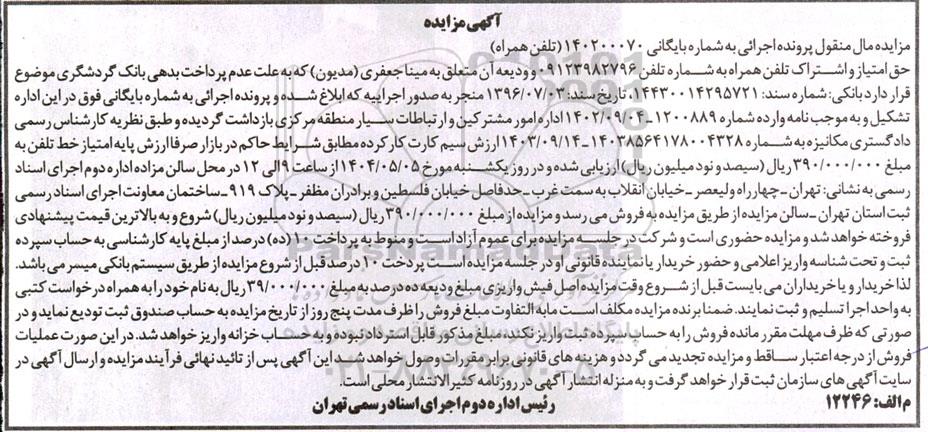 آگهی مزایده
مزایده مال منقول پرونده اجرائی به شماره بایگانی ۱۴۰۲۰۰۰۷۰ (تلفن همراه)
حق امتیاز و اشتراک تلفن همراه به شماره تلفن ۰۹۱۲۳۹۸۲۷۹۶ و ودیعه آن متعلق به مینا جعفری (مدیون) که به علت عدم پرداخت بدهی بانک گردشگری موضوع
قرارداد بانکی: شماره سند: ۱۴۴۳۰۰۱۴۲۹۵۷۲۱، تاریخ سند: ۱۳۹۶/۰۷/۰۳ منجر به صدور اجراییه که ابلاغ شده و پرونده اجرائی به شماره بایگانی فوق در این اداره
تشکیل و به موجب نامه وارده شماره ۱۲۰۰۸۸۹ـ ۱۴۰۲/۰۹/۰۴ اداره امور مشترکین و ارتباطات سیار منطقه مرکزی بازداشت گردیده و طبق نظریه کارشناس رسمی
دادگستری مکانیزه به شماره ۱۴۰۳۸۵۶۴۱۷۸۰۰۴۳۲۸ـ ۱۴۰۳/۰۹/۱۴ ارزش سیم کارت کارکرده مطابق شرایط حاکم در بازار صرفا ارزش پایه امتیاز خط تلفن به
مبلغ ۳۹۰/۰۰۰/۰۰۰ ریال (سیصد و نود میلیون ریال) ارزیابی شده و در روز یکشنبه مورخ ۱۴۰۴/۰۵/۰۵ از ساعت ۹ الی ۱۲ در محل سالن مزاده اداره دوم اجرای اسناد
رسمی به نشانی: تهران ـ چهارراه ولیعصر ـ خیابان انقلاب به سمت غرب ـ حدفاصل خیابان فلسطین و برادران مظفر ـ پلاک ۹۱۹ ـ ساختمان معاونت اجرای اسناد رسمی
ثبت استان تهران ـ سالن مزایده از طریق مزایده به فروش می رسد و مزایده از مبلغ ۳۹۰/۰۰۰/۰۰۰ ریال (سیصد و نود میلیون ریال) شروع و به بالاترین قیمت پیشنهادی
فروخته خواهد شد و مزایده حضوری است و شرکت در جلسه مزایده برای عموم آزاد است و منوط به پرداخت ۱۰ (ده) درصد از مبلغ پایه کارشناسی به حساب سپرده
ثبت و تحت شناسه واریز اعلامی و حضور خریدار یا نماینده قانونی او در جلسه مزایده است پرداخت ۱۰ درصد قبل از شروع مزایده از طریق سیستم بانکی میسر می باشد.
لذا خریدار و یا خریداران می بایست قبل از شروع وقت مزایده اصل فیش واریزی مبلغ ودیعه ده درصد به مبلغ ۳۹/۰۰۰/۰۰۰ ریال به نام خود را به همراه درخواست کتبی
به واحد اجرا تسلیم و ثبت نمایند. ضمنا برنده مزایده مکلف است مابه التفاوت مبلغ فروش را ظرف مدت پنج روز از تاریخ مزایده به حساب صندوق ثبت تودیع نماید و در
صورتی که ظرف مهلت مقرر مانده فروش را به حساب سپرده ثبت واریز نکند، مبلغ مذکور قابل استرداد نبوده و به حساب خزانه واریز خواهد شد. در این صورت عملیات
فروش از درجه اعتبار ساقط و مزایده تجدید می گردد و هزینه های قانونی برابر مقررات وصول خواهد شد این آگهی پس از تائید نهائی فرآیند مزایده و ارسال آگهی در
سایت آگهی های سازمان ثبت قرار خواهد گرفت و به منزله انتشار آگهی در روزنامه کثیرالانتشار محلی است.
م الف: ۱۲۲۴۶ رئیس اداره دوم اجرای اسناد رسمی تهران